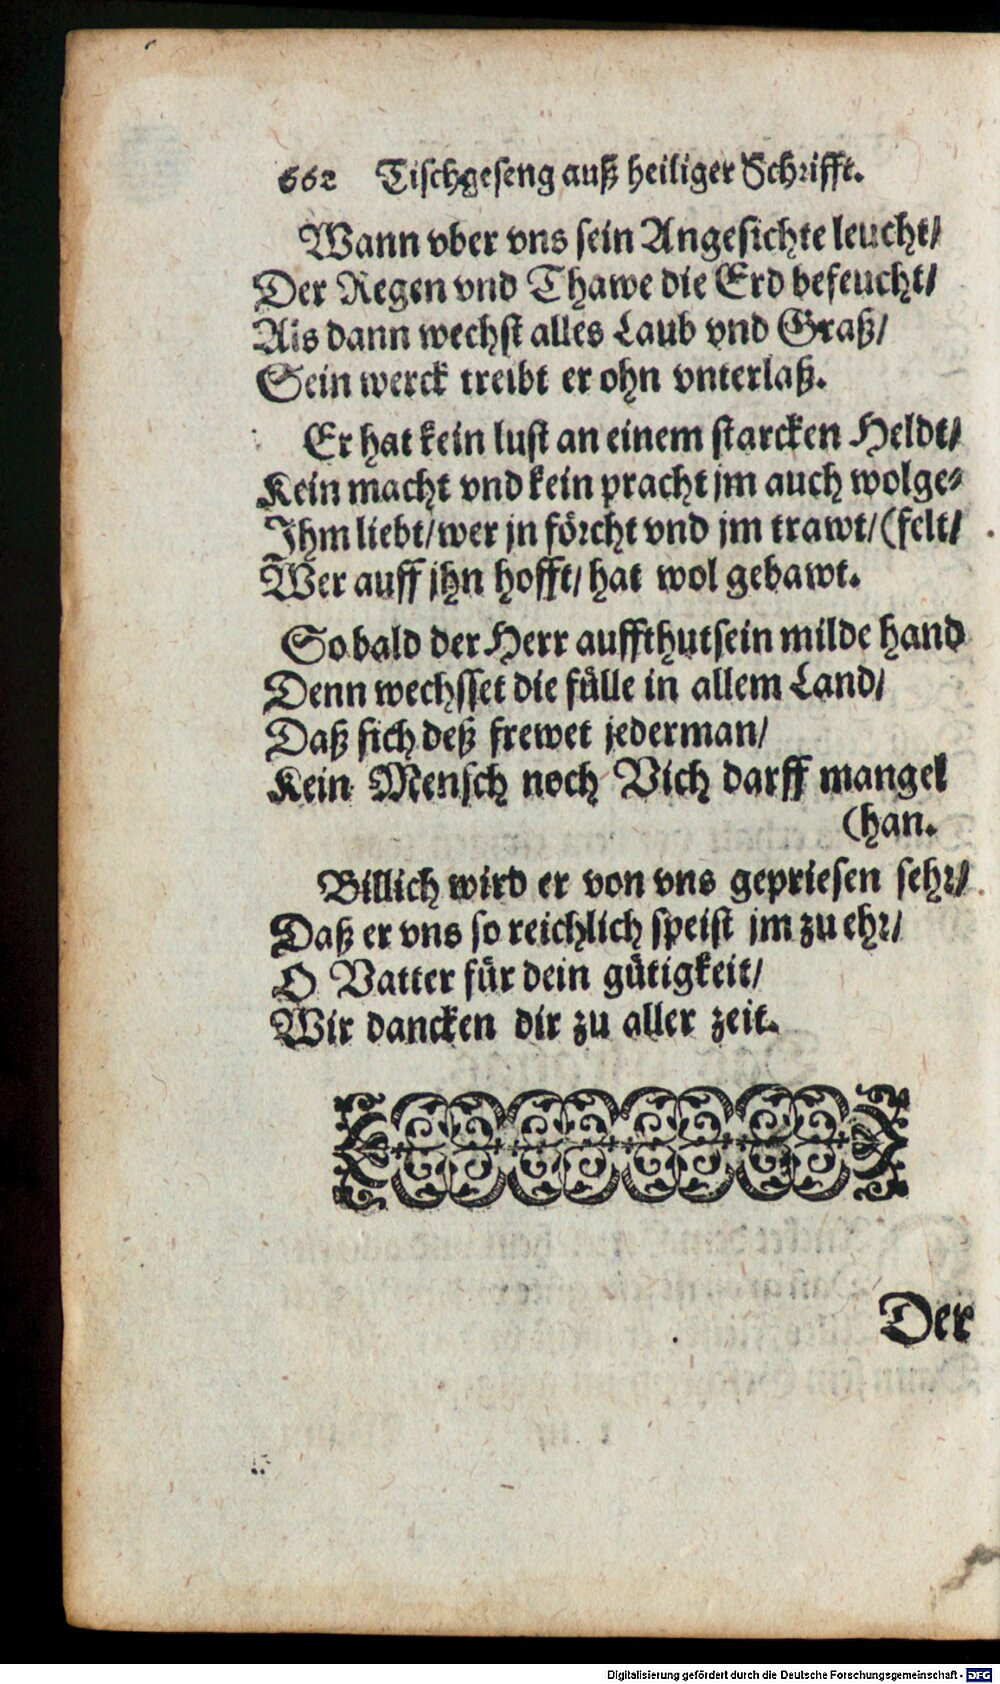 662 Tischgeseng auß heiliger Schrifft.
Wann vber vns sein Angesichte leucht/
Der Regen vnd Thawe die Erd befeucht/
Als dann wechst alles Laub vnd Graß/
Sein werck treibt er ohn vnterlaß.
Er hat kein lust an einem starcken Heldt/
Kein macht vnd kein pracht jm auch wolge-
Ihm liebt/ wer jn förcht vnd jm trawt/ (felt/
Wer auff jhn hofft/ hat wol gebawt.
So bald der Herr auffthut sein milde hand
Denn wechsset die fülle in allem Land/
Daß sich deß frewet jederman/
Kein Mensch noch Vich darff mangel
(han.
Billich wird er von vns gepriesen sehr/
Daß er vns so reichlich speist jm zu ehr/
O Vatter für dein gütigkeit/
Wir dancken dir zu aller zeit.
Der
Digitalisierung gefördert durch die Deutsche Forschungsgemeinschaft - DFG